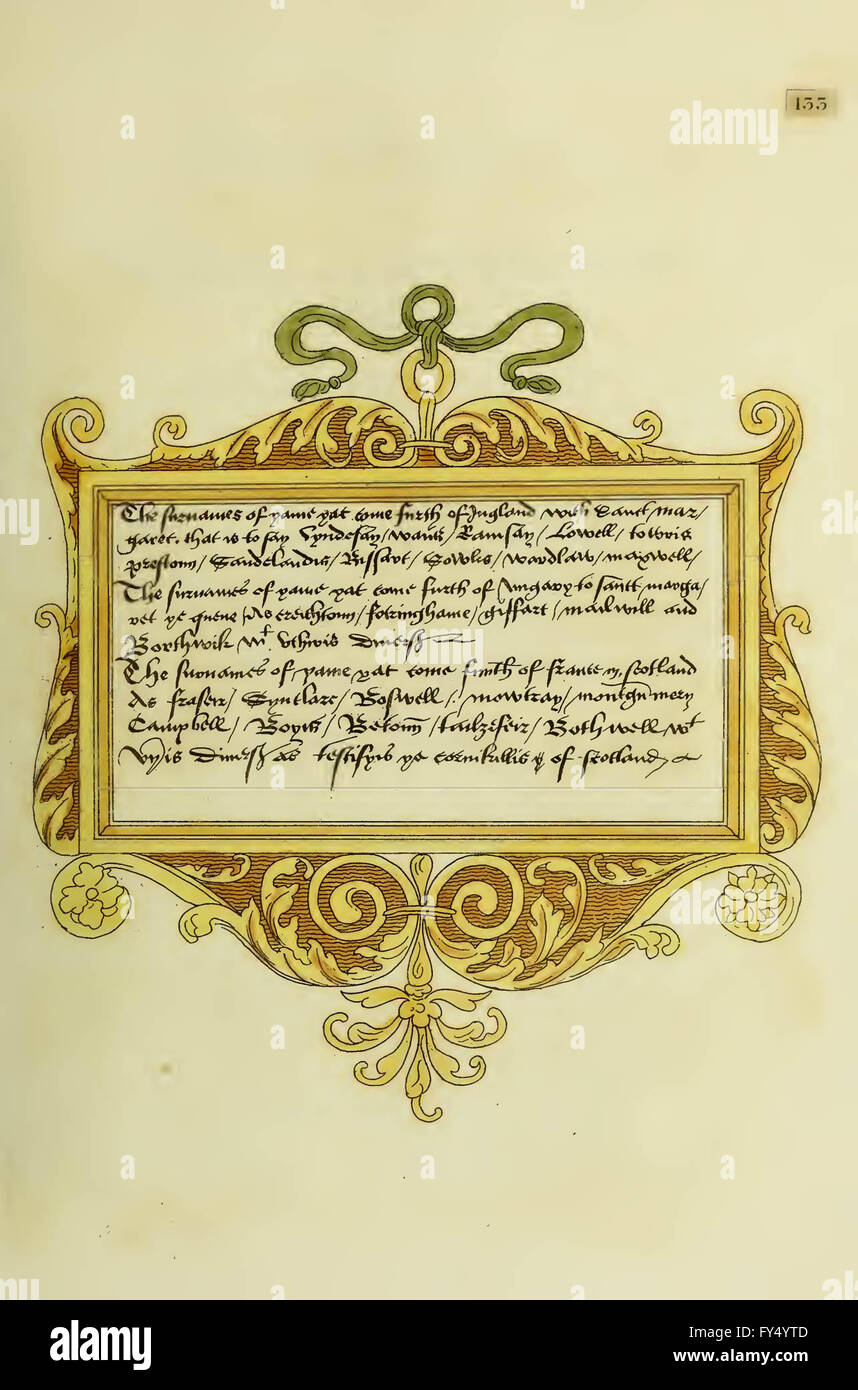 133
The surnames of yame yat come furth of Ingland with Sanct mar/
garet. that is to say Lyndesay/ waus/ Ramsay/ Lowell/ towris
prestoun/ Sandelandis/ Bissart/ Sowlis/ wardlaw/ maxwell/
The surnames of yame yat come furth of Ungary to sanct marga/
ret ye quene/ As creichtoun/ fotringhame/ giffart/ mailwill and
Borthwik wt. vthris diuerss
The surnames of yame yat come furth of france in scotland
As fraseir/ Synclare/ Boswell/ mowtray/ montgumery
Campbell/ Boyis/ Betoun/ tailzefeir/ Bothwell wt
vyis diuerss as testifyis ye cornikillis of scotland
alamy
Image ID: FY4YTD
www.alamy.com